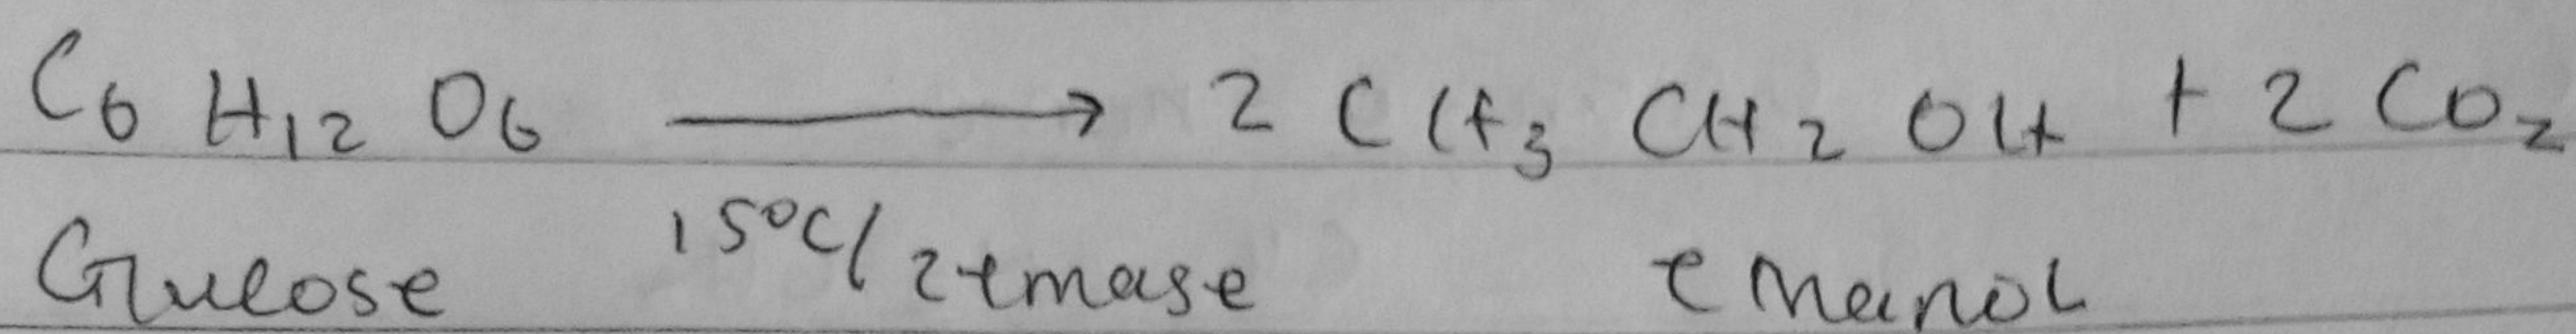 C6 H12 O6 ⟶ 2 CH3 CH2 OH + 2 CO2
Glucose 15°C/zemase ethanol